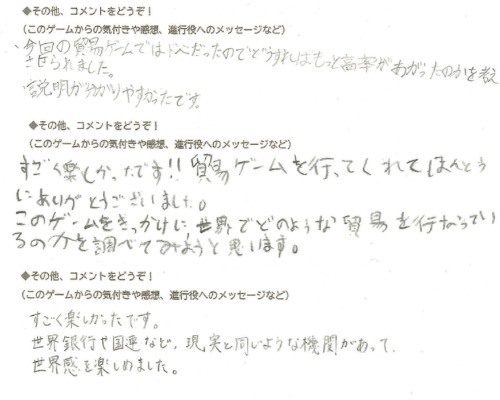 ◆その他、コメントをどうぞ！
（このゲームからの気付きや感想、進行役へのメッセージなど）
今回の貿易ゲームではドベだったのでどうすればもっと高率があがったのかを考え
させられました。
説明が分かりやすかったです。
◆その他、コメントをどうぞ！
（このゲームからの気付きや感想、進行役へのメッセージなど）
すごく楽しかったです!! 貿易ゲームを行ってくれてほんとう
にありがとうございました。
このゲームをきっかけに、世界でどのような貿易を行なってい
るのかを調べてみようと思います。
◆その他、コメントをどうぞ！
（このゲームからの気付きや感想、進行役へのメッセージなど）
すごく楽しかったです。
世界銀行や国連など、現実と同じような機関があって、
世界感を楽しめました。